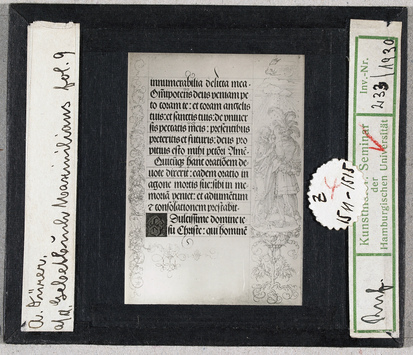 A. Dürer.
a/d. Gebetbuch Maximilians fol. 9
innumerabilia delicta mea.
Omnipotens deus veniam pe
to coram te: et coram angelis
tuis: et sanctis tuis: de vniver
sis peccatis meis: presentibus
preteritis et futuris: deus pro
pitius esto mihi pctori Ame.
Quicuqz hanc orationem de
uote dixerit: eadem oratio in
agone mortis sue: sibi in me
moriam veniet: et adiumentum
et consolationem prestabit.
Dulcissime domine ie
su Christe: qui homine
2
1514-1515
Kunsthist. Seminar
der
Hamburgischen Universität
Inv.-Nr.
233/1930